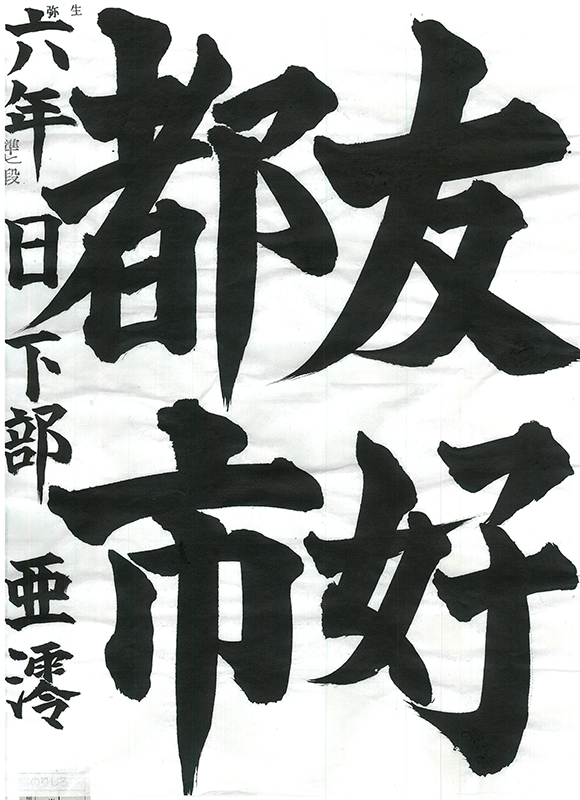 友好
都市
弥生
六年 準七段 日下部 亜澪
のりしろ